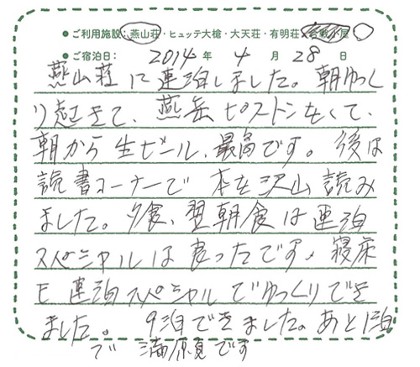 ●ご利用施設：燕山荘・ヒュッテ大槍・大天荘・有明荘
●ご宿泊日： 2014 年 4 月 28 日
燕山荘に連泊しました。朝ゆっく
り起きて、燕岳ピストンなくて、
朝から生ビール、最高です。後は
読書コーナーで本を沢山読み
ました。夕食、翌朝食は連泊
スペシャルは良ったです。寝床
も連泊スペシャルでゆっくりでき
ました。9泊できました。あと1泊
で満願です